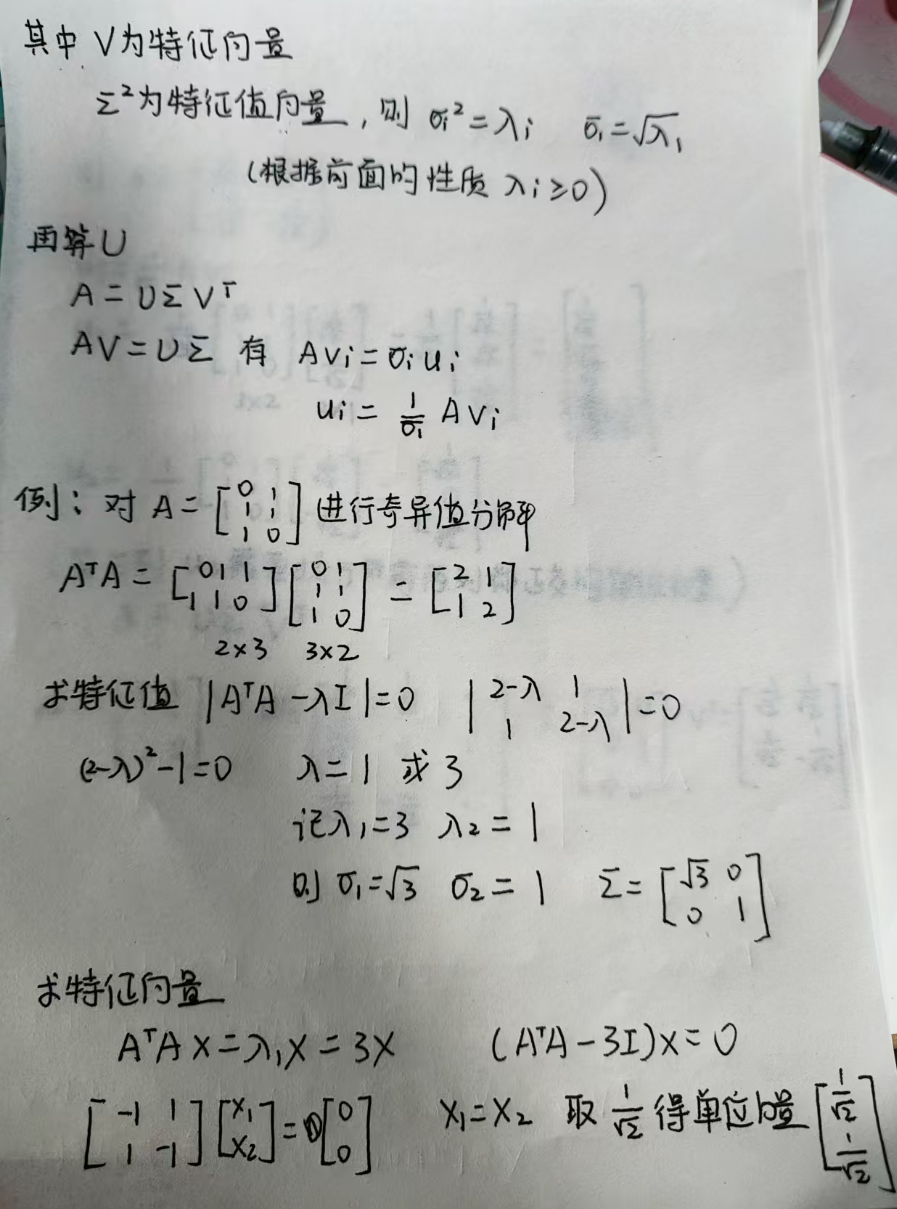 其中 V为特征向量
Σ²为特征值向量，则 σi²=λi σ₁=√λ₁
(根据前面的性质 λi≥0)
再算U
A=UΣVᵀ
AV=UΣ 有 Avi=σiui
ui=1/σ₁ Avi
例：对 A=[0 1; 1 1; 1 0] 进行奇异值分解
AᵀA=[0 1 1; 1 1 0][0 1; 1 1; 1 0]=[2 1; 1 2]
2×3 3×2
求特征值 |AᵀA-λI|=0 |2-λ 1; 1 2-λ|=0
(2-λ)²-1=0 λ=1 或 3
记λ₁=3 λ₂=1
则 σ₁=√3 σ₂=1 Σ=[√3 0; 0 1]
求特征向量
AᵀAx=λ₁x=3x (AᵀA-3I)x=0
[-1 1; 1 -1][x₁; x₂]=[0; 0] x₁=x₂ 取 1/√2 得单位向量 [1/√2; 1/√2]